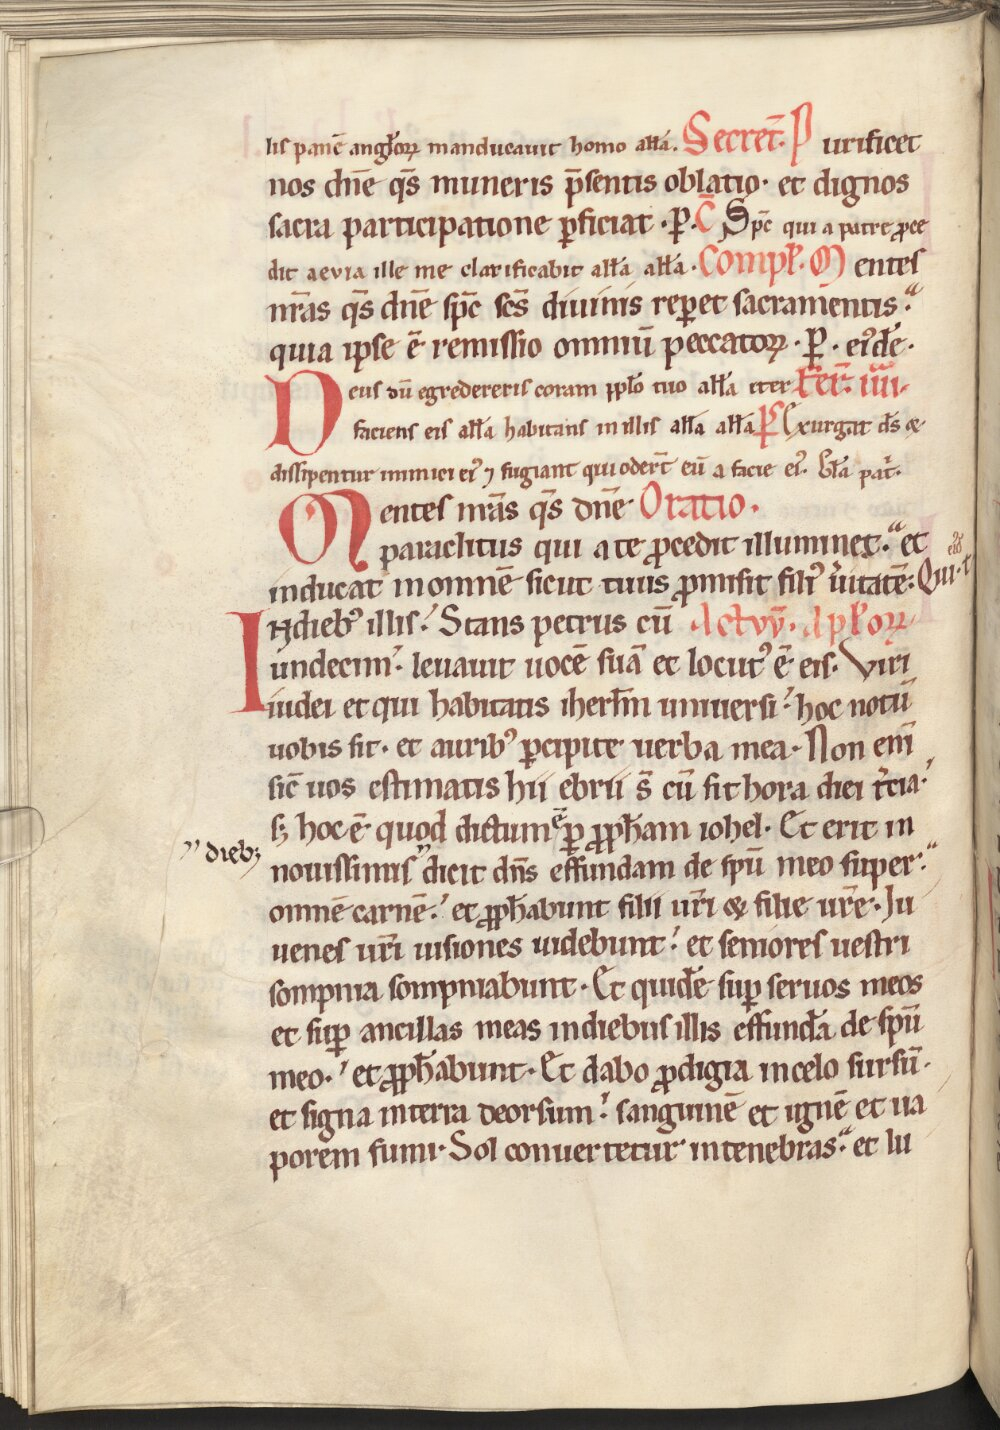 lis panē angl̄oꝝ manducauit homo all̄a. Secret̄. Purificet
nos dn̄e qs̄ muneris p̄sentis oblatio· et dignos
sacra participatione ꝑficiat ·P· C̄ Sp̄c qui a patre ꝓce
dit aevia ille me clarificabit all̄a all̄a· Compl̄. Mentes
nr̄as qs̄ dn̄e sp̄c sc̄s diuinis reꝑet sacramentis·
quia ipse ē remissio omniū peccatoꝝ ·P· eiꝰdē·
Deus dū egredereris coram ppl̄o tuo all̄a iter Fer̄. iiii·
faciens eis all̄a habitans in illis all̄a all̄a Ps̄ Exurgat ds̄ &
dissipentur inimici eiꝰ ⁊ fugiant qui oder̄t eū a facie eiꝰ. Gl̄a pat̄.
Mentes nr̄as qs̄ dn̄e Oratio·
paraclitus qui a te ꝓcedit illuminet· et
inducat in omnē sicut tuus ꝓmisit filiꝰ ùitatē: Qui·t eiꝰd
In diebꝰ illis: Stans petrus cū Actvv̄· apl̄oꝝ
undecim· leuauit uocē suā et locutꝰ ē eis· Viri
iudei et qui habitatis iherl̄m uniuersi: hoc notū
uobis sit· et auribꝰ ꝑcipite uerba mea· Non eni̅
sic̄ uos estimatis hii ebrii s̄ cū sit hora diei t̉cia·
sꝫ hoc ē quod dictum ē ꝑ ꝓph̄am iohel· Et erit in
diebꝫ
nouissimis dicit dn̄s effundam de sp̄u meo super·
omnē carnē: et ꝓph̄abunt filii ur̄i & filie ur̄e· Iu
uenes ur̄i uisiones uidebunt: et seniores uestri
sompnia sompniabunt· Et quidē suꝑ seruos meos
et suꝑ ancillas meas in diebus illis effundā de sp̄u
meo· et ꝓph̄abunt· Et dabo ꝓdigia in celo sursū·
et signa in terra deorsum: sanguinē et ignē et ua
porem fumi· Sol conuertetur in tenebras· et lu